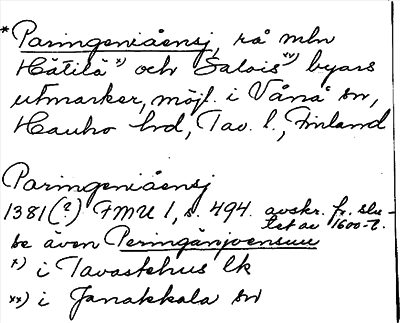 *Paringeniåensj, rå mln
Hätilä*) och Salois**) byars
utmarker, möjl. i Vånå sn,
Hauho hd, Tav. l., Finland
Paringeniåensj
1381(?) FMU 1, s. 494. avskr. fr. slu-
tet av 1600-t.
se även Peringänjoensuu
*) i Tavastehus lk
**) i Janakkala sn